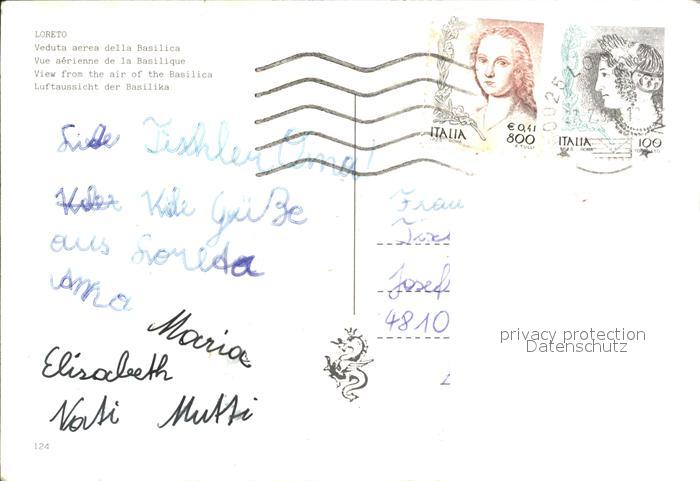 LORETO
Veduta aerea della Basilica
Vue aérienne de la Basilique
View from the air of the Basilica
Luftaussicht der Basilika
ITALIA
€ 0,41
800
ITALIA
100
Liebe Tischler Oma!
Viele Grüße
aus Loreto
Anna
Maria
Elisabeth
Vati Mutti
Frau
Josef
4810
privacy protection
Datenschutz
124